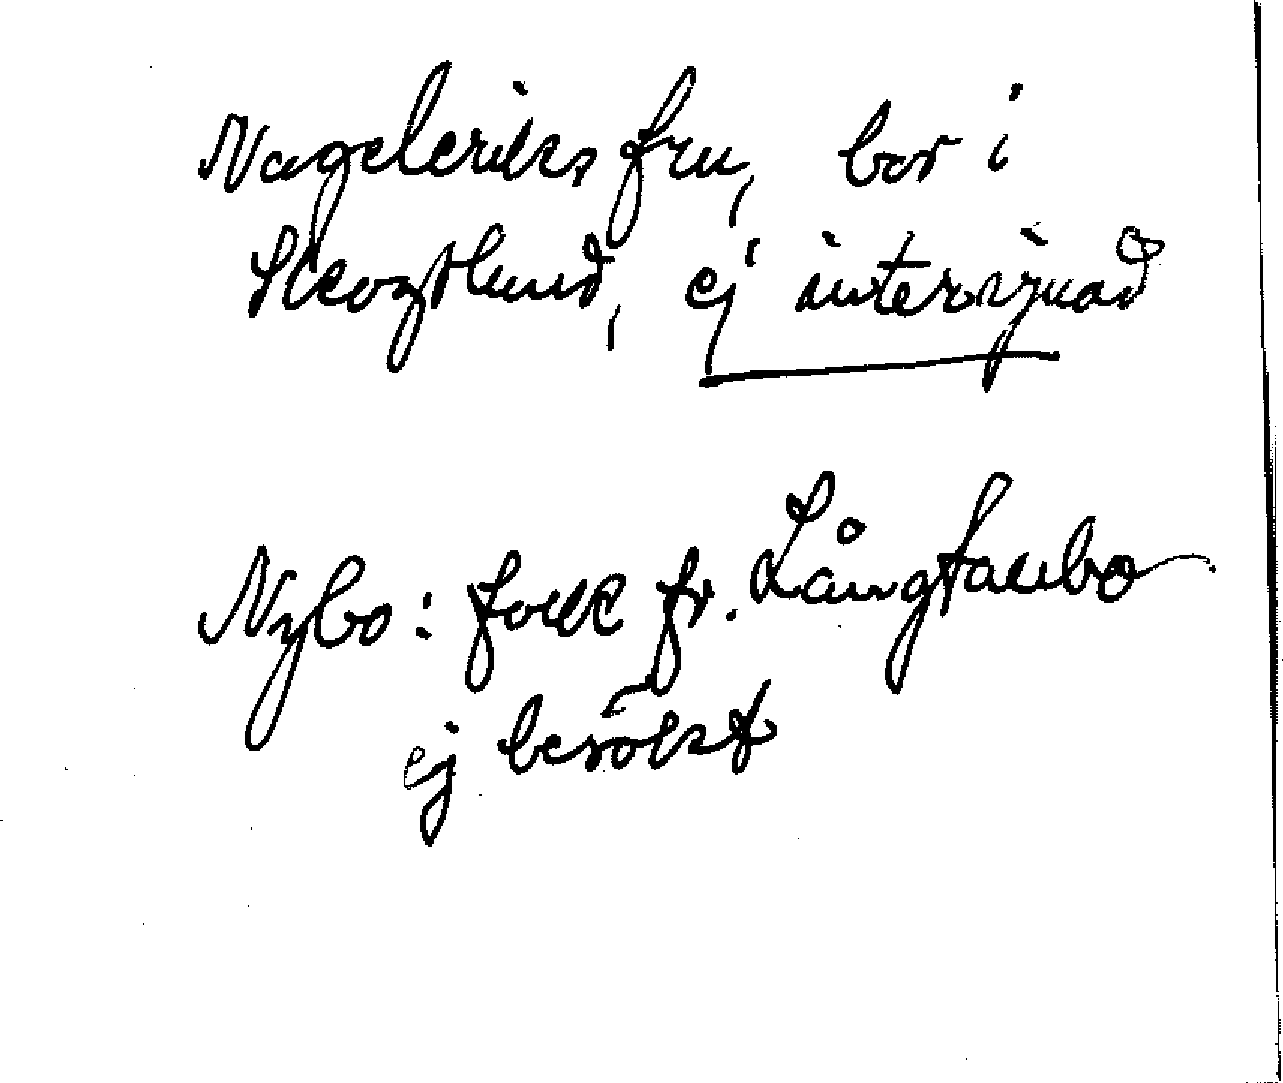 Nageleriks fru, bor i
Skogstlund, ej intervjuad
Nybo: folk fr. Långtäkebo
ej besökt